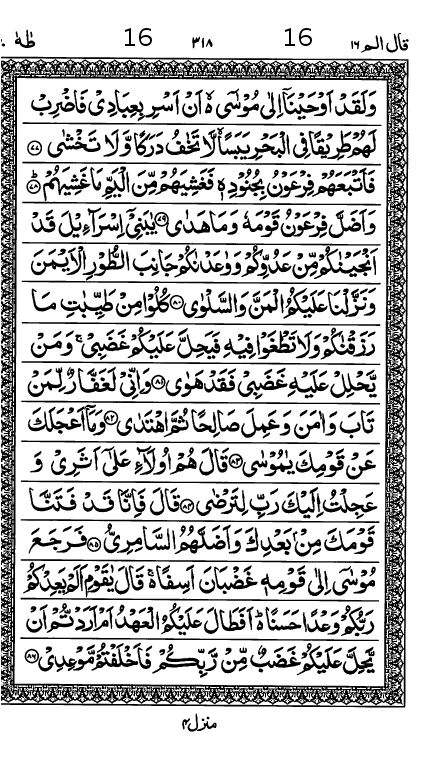 قال الم ١٦ 16 ٣١٨ 16 طٰهٰ ٢٠
وَلَقَدْ اَوْحَيْنَاۤ اِلٰى مُوْسٰۤى ۙ اَنْ اَسْرِ بِعِبَادِيْ فَاضْرِبْ
لَهُمْ طَرِيْقًا فِي الْبَحْرِ يَبَسًا ۙ لَّا تَخٰفُ دَرَكًا وَّلَا تَخْشٰى ﴿٧٧﴾
فَاَتْبَعَهُمْ فِرْعَوْنُ بِجُنُوْدِهٖ فَغَشِيَهُمْ مِّنَ الْيَمِّ مَا غَشِيَهُمْ ؕ﴿٧٨﴾
وَاَضَلَّ فِرْعَوْنُ قَوْمَهٗ وَمَا هَدٰى ﴿٧٩﴾ يٰبَنِيْۤ اِسْرَآءِيْلَ قَدْ
اَنْجَيْنٰكُمْ مِّنْ عَدُوِّكُمْ وَوٰعَدْنٰكُمْ جَانِبَ الطُّوْرِ الْاَيْمَنَ
وَنَزَّلْنَا عَلَيْكُمُ الْمَنَّ وَالسَّلْوٰى ﴿٨٠﴾ كُلُوْا مِنْ طَيِّبٰتِ مَا
رَزَقْنٰكُمْ وَلَا تَطْغَوْا فِيْهِ فَيَحِلَّ عَلَيْكُمْ غَضَبِيْ ۚ وَمَنْ
يَّحْلِلْ عَلَيْهِ غَضَبِيْ فَقَدْ هَوٰى ﴿٨١﴾ وَاِنِّيْ لَغَفَّارٌ لِّمَنْ
تَابَ وَاٰمَنَ وَعَمِلَ صَالِحًا ثُمَّ اهْتَدٰى ﴿٨٢﴾ وَمَاۤ اَعْجَلَكَ
عَنْ قَوْمِكَ يٰمُوْسٰى ﴿٨٣﴾ قَالَ هُمْ اُولَآءِ عَلٰۤى اَثَرِيْ وَ
عَجِلْتُ اِلَيْكَ رَبِّ لِتَرْضٰى ﴿٨٤﴾ قَالَ فَاِنَّا قَدْ فَتَنَّا
قَوْمَكَ مِنْۢ بَعْدِكَ وَاَضَلَّهُمُ السَّامِرِيُّ ﴿٨٥﴾ فَرَجَعَ
مُوْسٰۤى اِلٰى قَوْمِهٖ غَضْبَانَ اَسِفًا ۚ قَالَ يٰقَوْمِ اَلَمْ يَعِدْكُمْ
رَبُّكُمْ وَعْدًا حَسَنًا ؕ اَفَطَالَ عَلَيْكُمُ الْعَهْدُ اَمْ اَرَدْتُّمْ اَنْ
يَّحِلَّ عَلَيْكُمْ غَضَبٌ مِّنْ رَّبِّكُمْ فَاَخْلَفْتُمْ مَّوْعِدِيْ ﴿٨٦﴾
منزل ٤